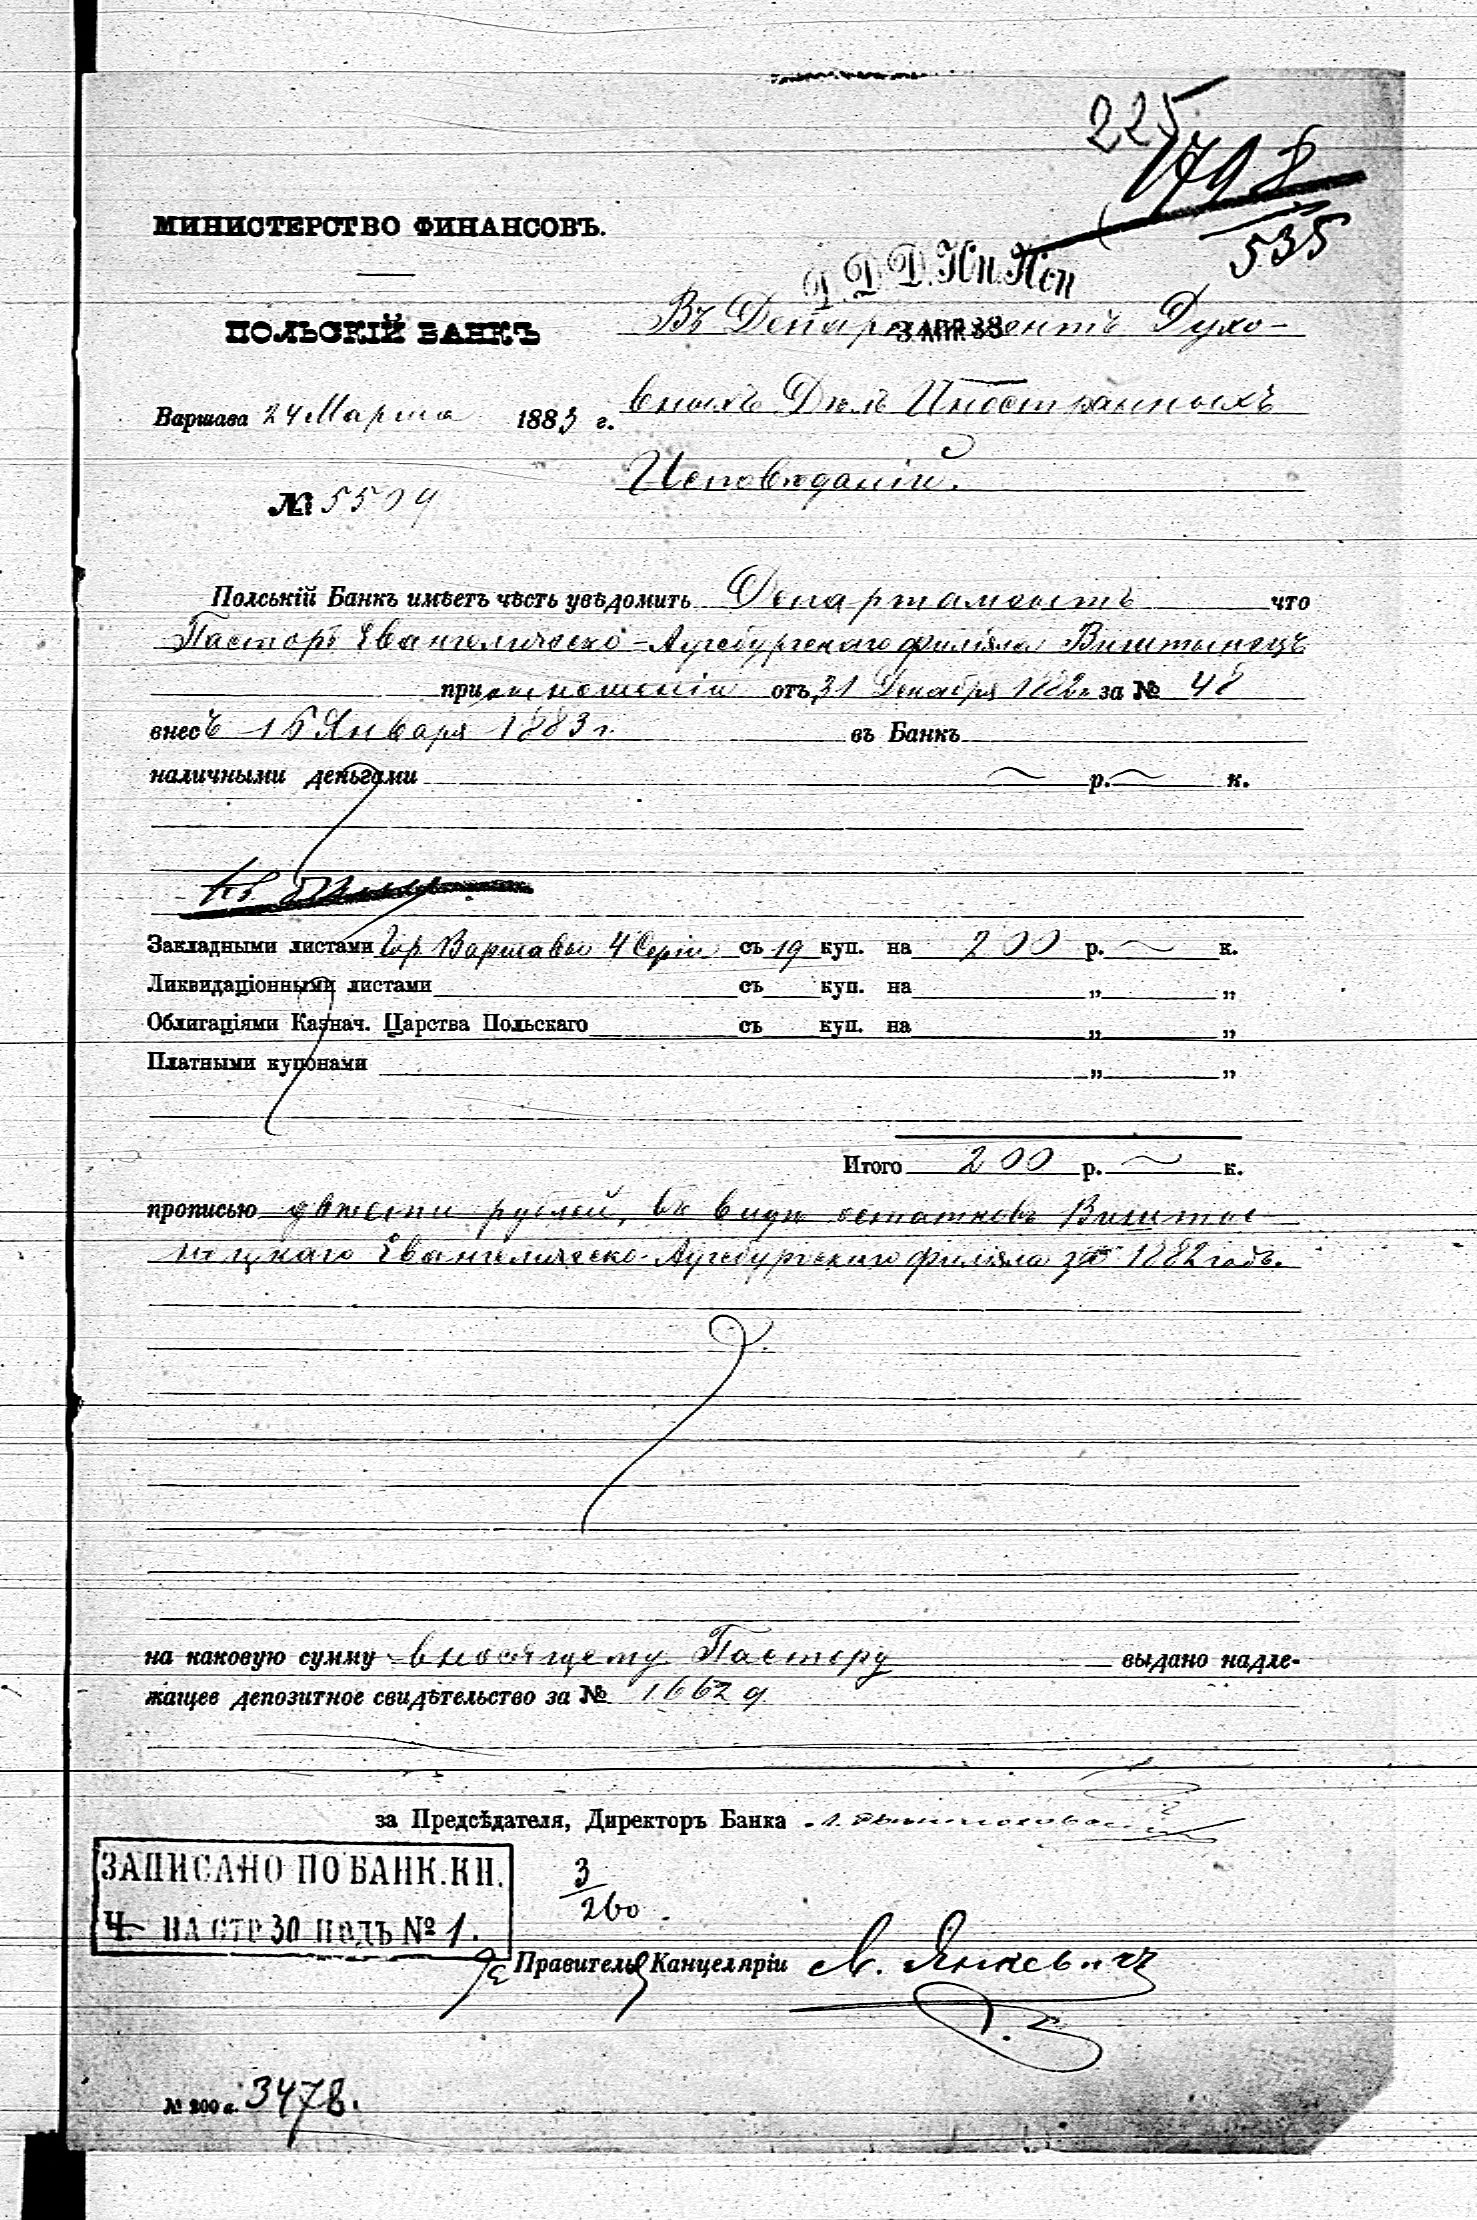 225
798
535
МИНИСТЕРСТВО ФИНАНСОВЪ.
Д. Д. Д. Ин. Исп
3 АПР. 83
ПОЛЬСКІЙ БАНКЪ
Въ Департаментъ Духо-
Варшава 24 Марта 1883 г.
вныхъ Дѣлъ Иностранныхъ
Исповѣданій.
№ 5509
Полській Банкъ имѣетъ чѣсть увѣдомить Департаментъ что
Пасторъ Евангелическо-Аугсбургскаго филіяла Виштынецъ
при отношеніи отъ 31 Декабря 1882г за № 48
внесъ 15 Января 1883 г. въ Банкъ
наличными деньгами р. к.
Закладными листами Гор. Варшавы 4 Серіи съ 19 куп. на 200 р. к.
Ликвидаціонными листами съ куп. на „ „
Облигаціями Казнач. Царства Польскаго съ куп. на „ „
Платными купонами „ „
Итого 200 р. к.
прописью двѣсти рублей, въ видѣ остатковъ Вишты-
нецкаго Евангелическо-Аугсбургскаго филіяла за 1882 годъ.
на каковую сумму вносящему Пастору выдано надле-
жащее депозитное свидѣтельство за № 16629
за Предсѣдателя, Директоръ Банка
ЗАПИСАНО ПО БАНК. КН.
Ч. НА СТР 30 ПОДЪ № 1.
3/260.
Правитель Канцеляріи А. Янкевичъ
№ 200 а. 3478.